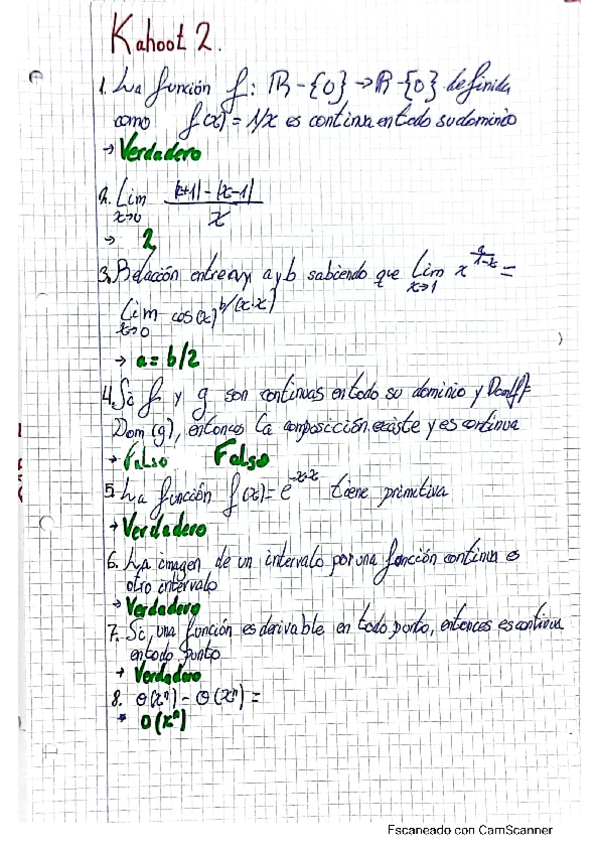 Kahoot 2.
1. La función f: ℝ-{0} → ℝ-{0} definida
como f(x) = 1/x es continua en todo su dominio
→ Verdadero
2. Lim |x+1| - |x-1| / x
x→0
→ 2
3. Relación entre a y b sabiendo que Lim x→1 x^{a/1-x} =
Lim x→0 cos(x)^{b/(x·x)}
→ a = b/2
4. Si f y g son continuas en todo su dominio y Dom(f)=
Dom(g), entonces la composicción existe y es continua
→ Falso Falso
5. La función f(x) = e^{-x·x} tiene primitiva
→ Verdadero
6. La imagen de un intervalo por una función continua es
otro intervalo
→ Verdadero
7. Si, una función es derivable en todo punto, entonces es continua
en todo punto
→ Verdadero
8. O(xⁿ) - O(xⁿ) =
→ O(xⁿ)
Escaneado con CamScanner